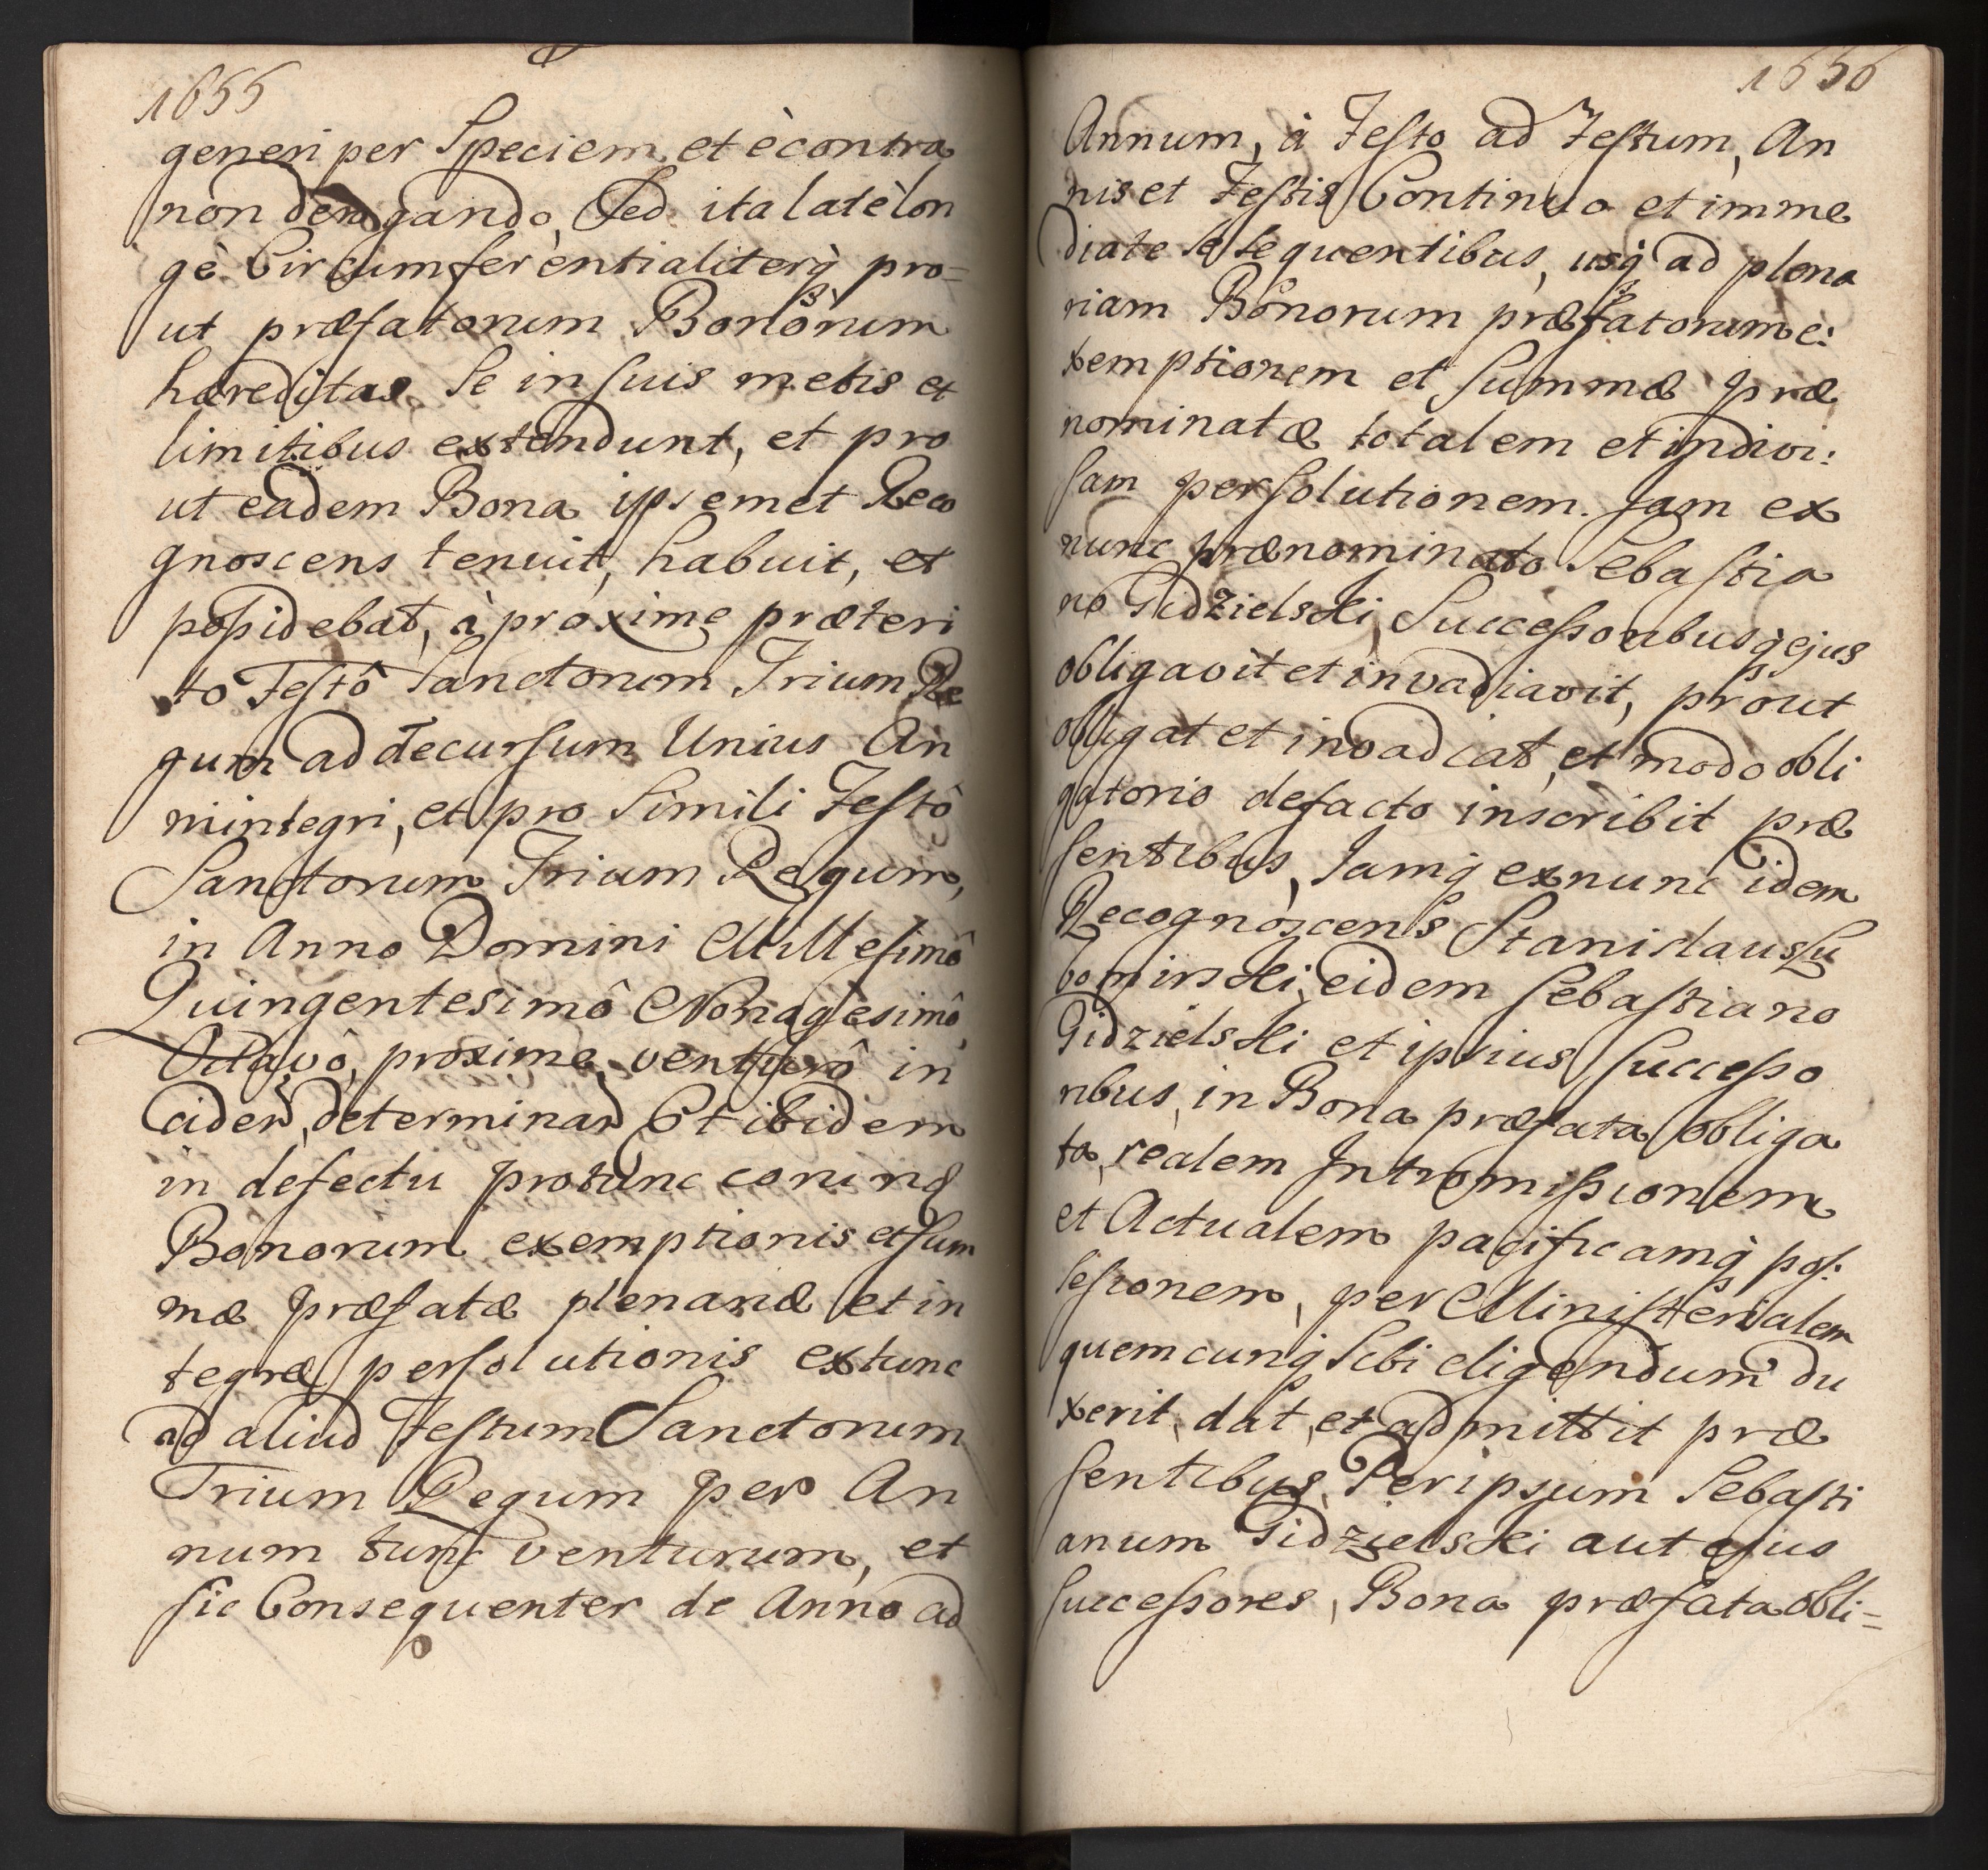 1655
generi per Speciem et è contra
non derogando, Sed ita latè lon
gè Circumferentialiterq̀ pro=
ut præfatorum Bonorum
hæreditas Se in suis metis et
limitibus extendunt, et pro
ut eadem Bona ipsemet Reco
gnoscens tenuit, habuit, et
possidebat, à proxime præteri
to Festô Sanctorum Trium Re
gum ad decursum Unius An
ni integri, et pro Simili Festô
Sanctorum Trium Regum,
in Anno Domini Millesimô
Quingentesimô Nonagesimô
Octavô, proxime venturô in
ciden, determinan Et ibidem
in defectu protunc eorund
Bonorum exemptionis et sum
mæ præfatæ plenariæ et in
tegræ persolutionis extunc
ad aliud Festum Sanctorum
Trium Regum per An
num tunc venturum, et
sic Consequenter de Anno ad
1656
Annum, à Festo ad Festum, An
nis et Festis Continuo et imme
diate se sequentibus, usq̀ ad plena
riam Bonorum præfatorum e:
xemptionem et Summæ præ
nominatæ totalem et indivi:
sam persolutionem. Jam ex
nunc prænominato Sebastia
no Gidzielski Successoribusq̀ ejus
obligavit et invadiavit, prout
obligat et invadiat, et modo obli
gatorio defacto inscribit præ
sentibus, Jamq̀ exnunc idem
Recognoscens Stanislaus Lu
bomirski, eidem Sebastiano
Gidzielski et ipsius Successo
ribus, in Bona præfata obliga
ta, realem Intromissionem
et Actualem pacificamq̀ pos:
sessionem, per Ministerialem
quemcunq̀ Sibi eligendum du
xerit, dat, et admittit præ
sentibus, Per ipsum Sebasti
anum Gidzielski aut ejus
successores, Bona præfata obli=